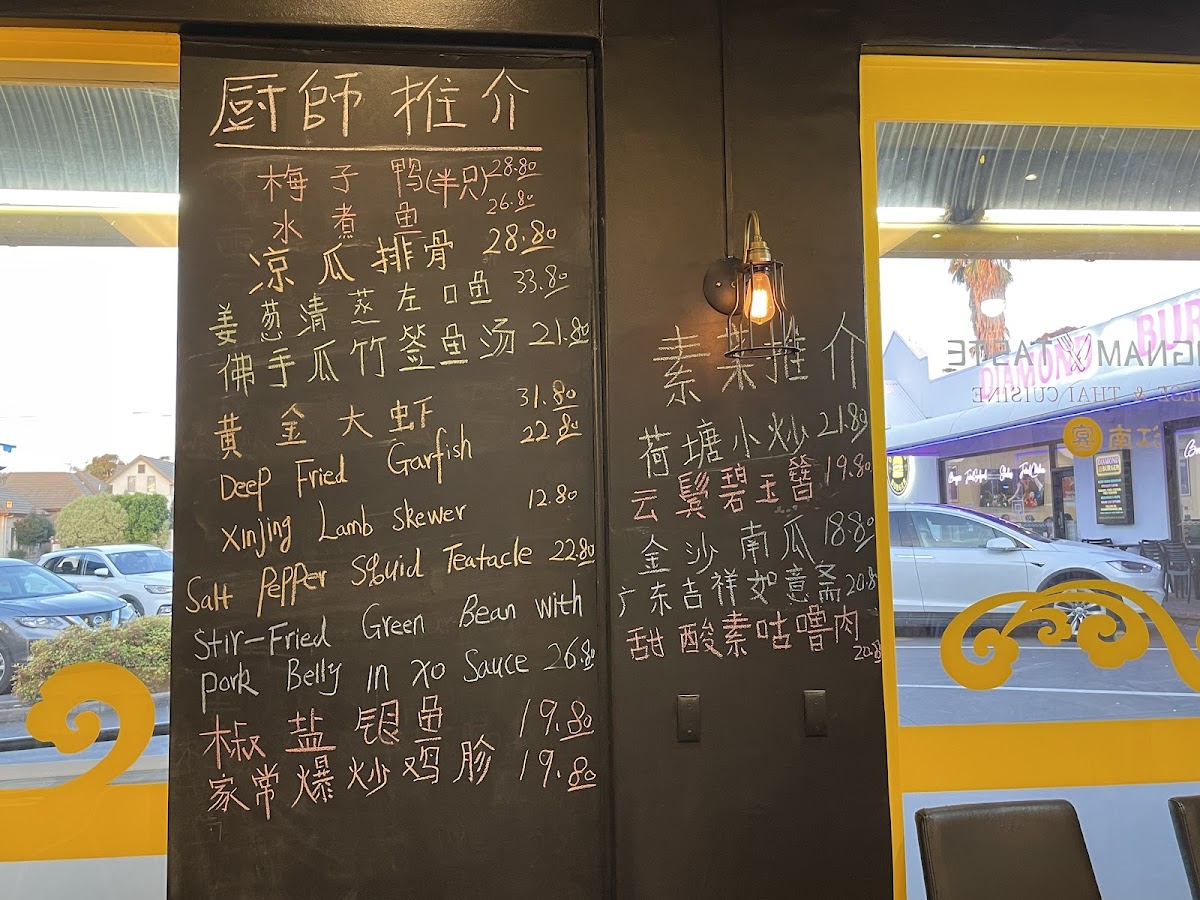 厨師推介
梅子鸭(半只) 28.80
水煮鱼 26.80
凉瓜排骨 28.80
姜葱清蒸左口鱼 33.80
佛手瓜竹签鱼汤 21.80
黄金大虾 31.80
Deep Fried Garfish 22.80
Xinjing Lamb Skewer 12.80
Salt Pepper Squid Teatacle 22.80
Stir-Fried Green Bean with
pork Belly in XO Sauce 26.80
椒盐银鱼 19.80
家常爆炒鸡胗 19.80
素菜推介
荷塘小炒 21.80
云鬓碧玉簪 19.80
金沙南瓜 18.80
广东吉祥如意斋 20.8
甜酸素咕噜肉 20.8
GNAM TASTE
ESE & THAI CUISINE
江南
DIAMOND BUR
DIAMOND
BURGER